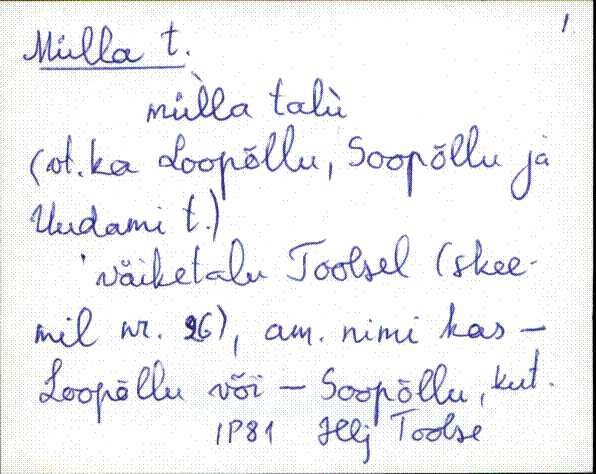 1.
Mülla t.
mül̀la talù
(vt. ka Loopõllu, Soopõllu ja
Uudami t.)
'väiketalu Toolsel (skee-
mil nr. 26), am. nimi kas –
Loopõllu või – Soopõllu, kut.
IP81 Hlj Toolse